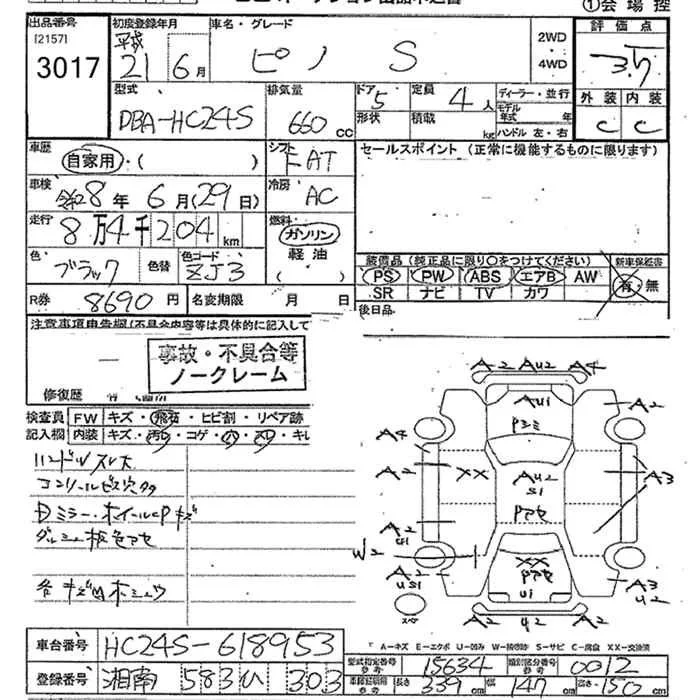 ①会場控
出品番号
[2157]
3017
初度登録年月
平成
21年6月
車名・グレード
ピノ S
2WD
・
4WD
評価点
3.5
外装 内装
C C
型式
DBA-HC24S
排気量
660 CC
ドア 5
形状
定員 4人
積載 kg
ディーラー・並行
モデル
年式 年
ハンドル 左・右
車歴
自家用・( )
シフト
FAT
セールスポイント (正常に機能するものに限ります)
車検
令和8年6月(29日)
冷房
AC
走行
8万4千204km
燃料
ガソリン
軽油
( )
色
ブラック
色替
色コード
ZJ3
装備品(純正品に限り○をつけてください)
PS PW ABS エアB AW
SR ナビ TV カワ
新車保証書
有・無
R券 8690円
名変期限 月 日
後日品
注意事項申告欄(不具合内容等は具体的に記入して
事故・不具合等
ノークレーム
修復歴
検査員 FW キズ・飛石・ヒビ割・リペア跡
記入欄 内装 キズ・汚レ・コゲ・穴・スレ・キレ
ハンドルスレ大
コンソールビス穴タタ
Dミラー・ホイールCPキズ
ダッシュ板色アセ
A2 AU2 A4
AU1
A2
A4
A2
XX
AU2
S1
A3
A2
W2
XX
A3
U2
A2
U1
A2
A-キズ E-エクボ U-凹み W-補修跡 S-サビ C-腐食 XX-交換済
車台番号 HC24S-618953
登録番号 湘南 583 い 303
型式指定番号
参考
15634
類別区分番号
参考
0012
長さ 339cm
幅 147cm
高さ 150cm